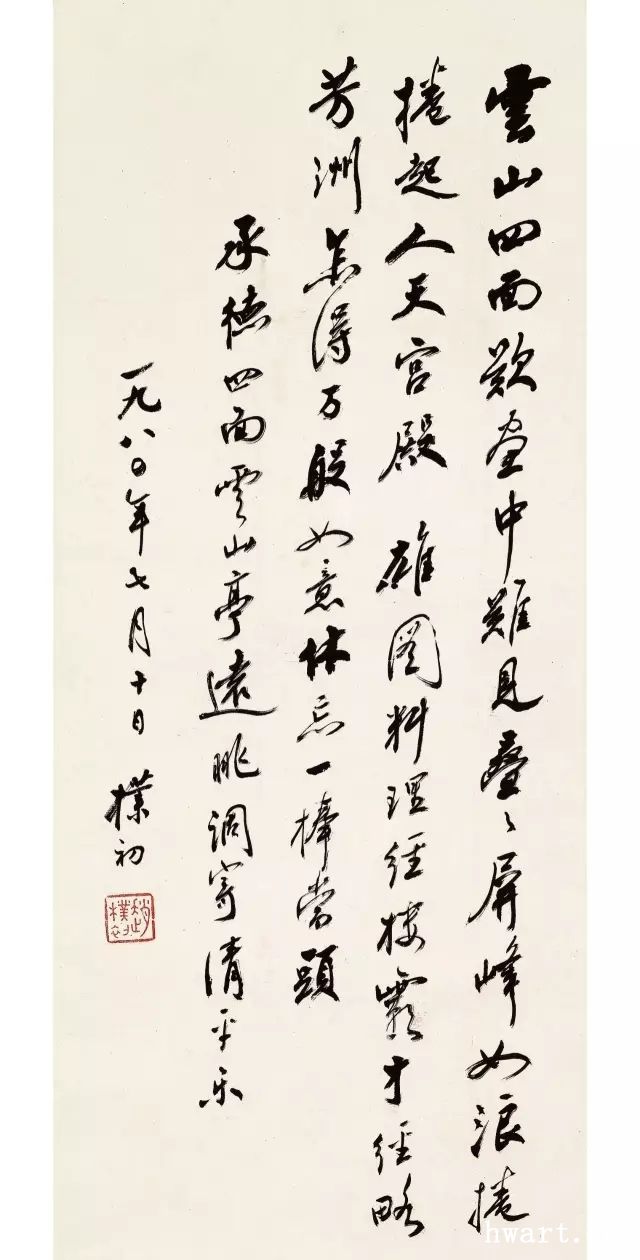 雲山四面歎畫中難見疊々屏峰如浪捲
捲起人天宫殿 雄圖料理經樓霸才經略
芳洲得万般如意休忘一棒當頭
承德四面雲山亭遠眺調寄清平乐
一九八〇年七月十日 樸初
趙樸初
hwart.